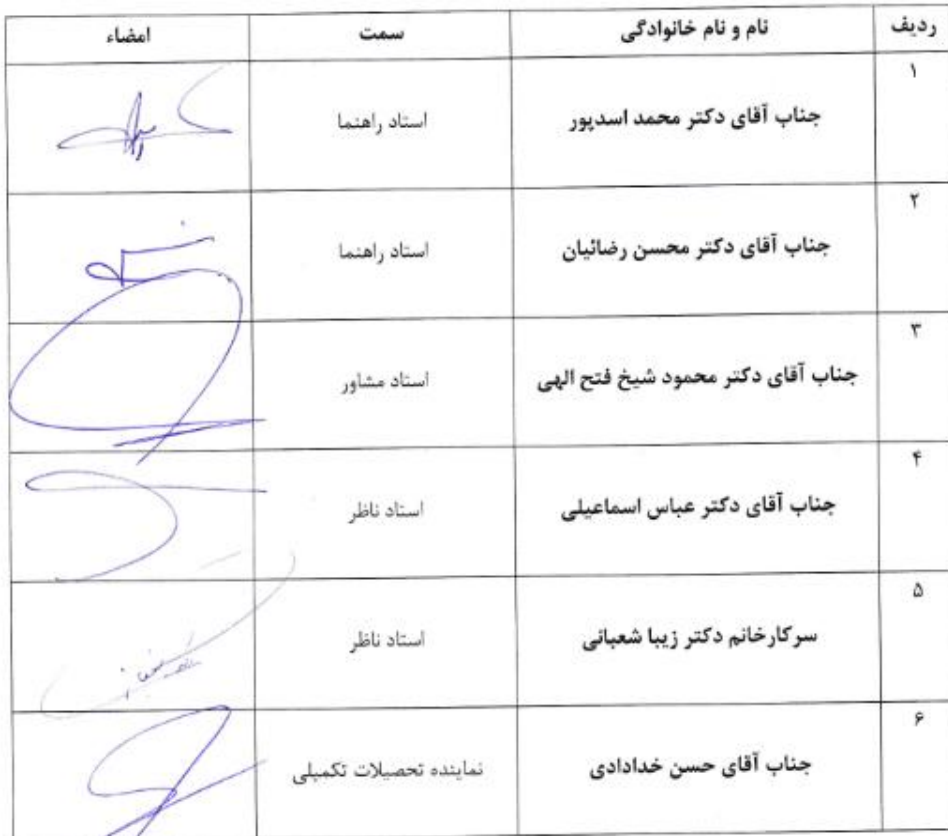 ردیف نام و نام خانوادگی سمت امضاء
۱ جناب آقای دکتر محمد اسدپور استاد راهنما
۲ جناب آقای دکتر محسن رضائیان استاد راهنما
۳ جناب آقای دکتر محمود شیخ فتح الهی استاد مشاور
۴ جناب آقای دکتر عباس اسماعیلی استاد ناظر
۵ سرکارخانم دکتر زیبا شعبانی استاد ناظر
۶ جناب آقای حسن خدادادی نماینده تحصیلات تکمیلی